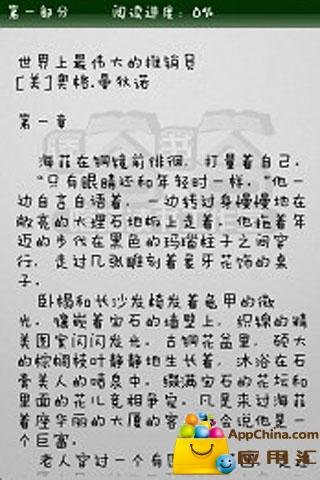 第一部分 阅读进度：0%
世界上最伟大的推销员
[美]奥格.曼狄诺
第一章
海菲在铜镜前徘徊，打量着自己。
“只有眼睛还和年轻时一样，”他一
边自言自语着，一边转过身慢慢地在
敞亮的大理石地板上走着。他拖着年
迈的步伐在黑色的玛瑙柱子之间穿
行，走过几张雕刻着象牙花饰的桌
子。
卧榻和长沙发椅发着龟甲的微
光。镶嵌着宝石的墙壁上，织锦的精
美图案闪闪发光。古铜花盆里，硕大
的棕榈枝叶静静地生长着，沐浴在石
膏美人的喷泉中，缀满宝石的花坛和
里面的花儿竞相争宠。凡是来过海菲
着座华丽的大厦的客 会说他是一
个巨富。
老人穿过一个有
AppChina.com
应用汇